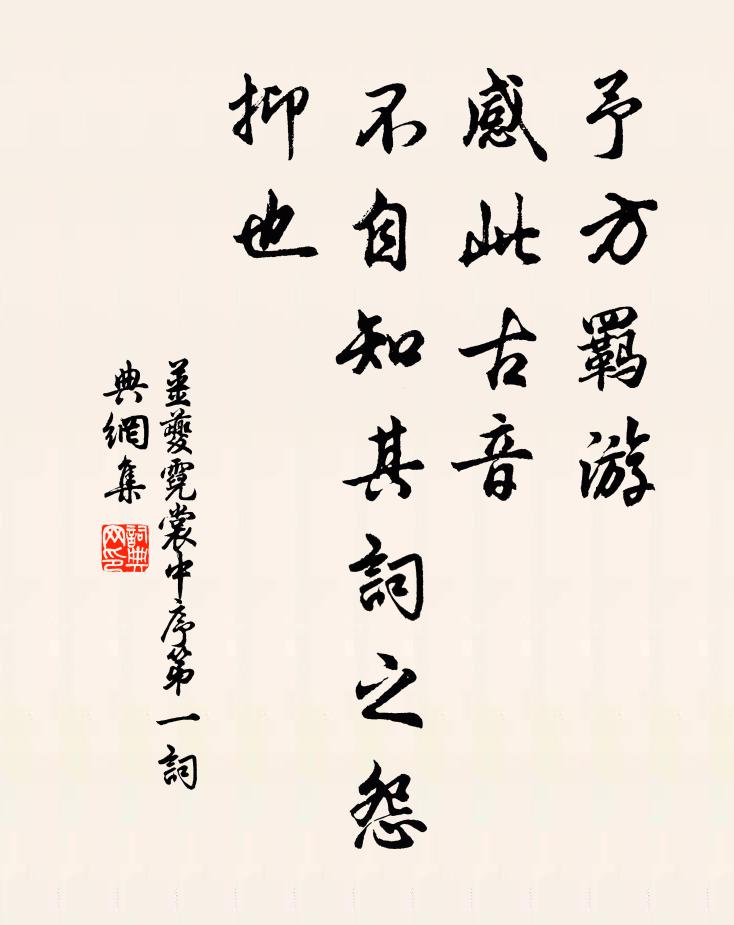 予方羈游
感此古音
不自知其詞之怨
抑也
姜夔霓裳中序第一詞
典網集
詞典网印